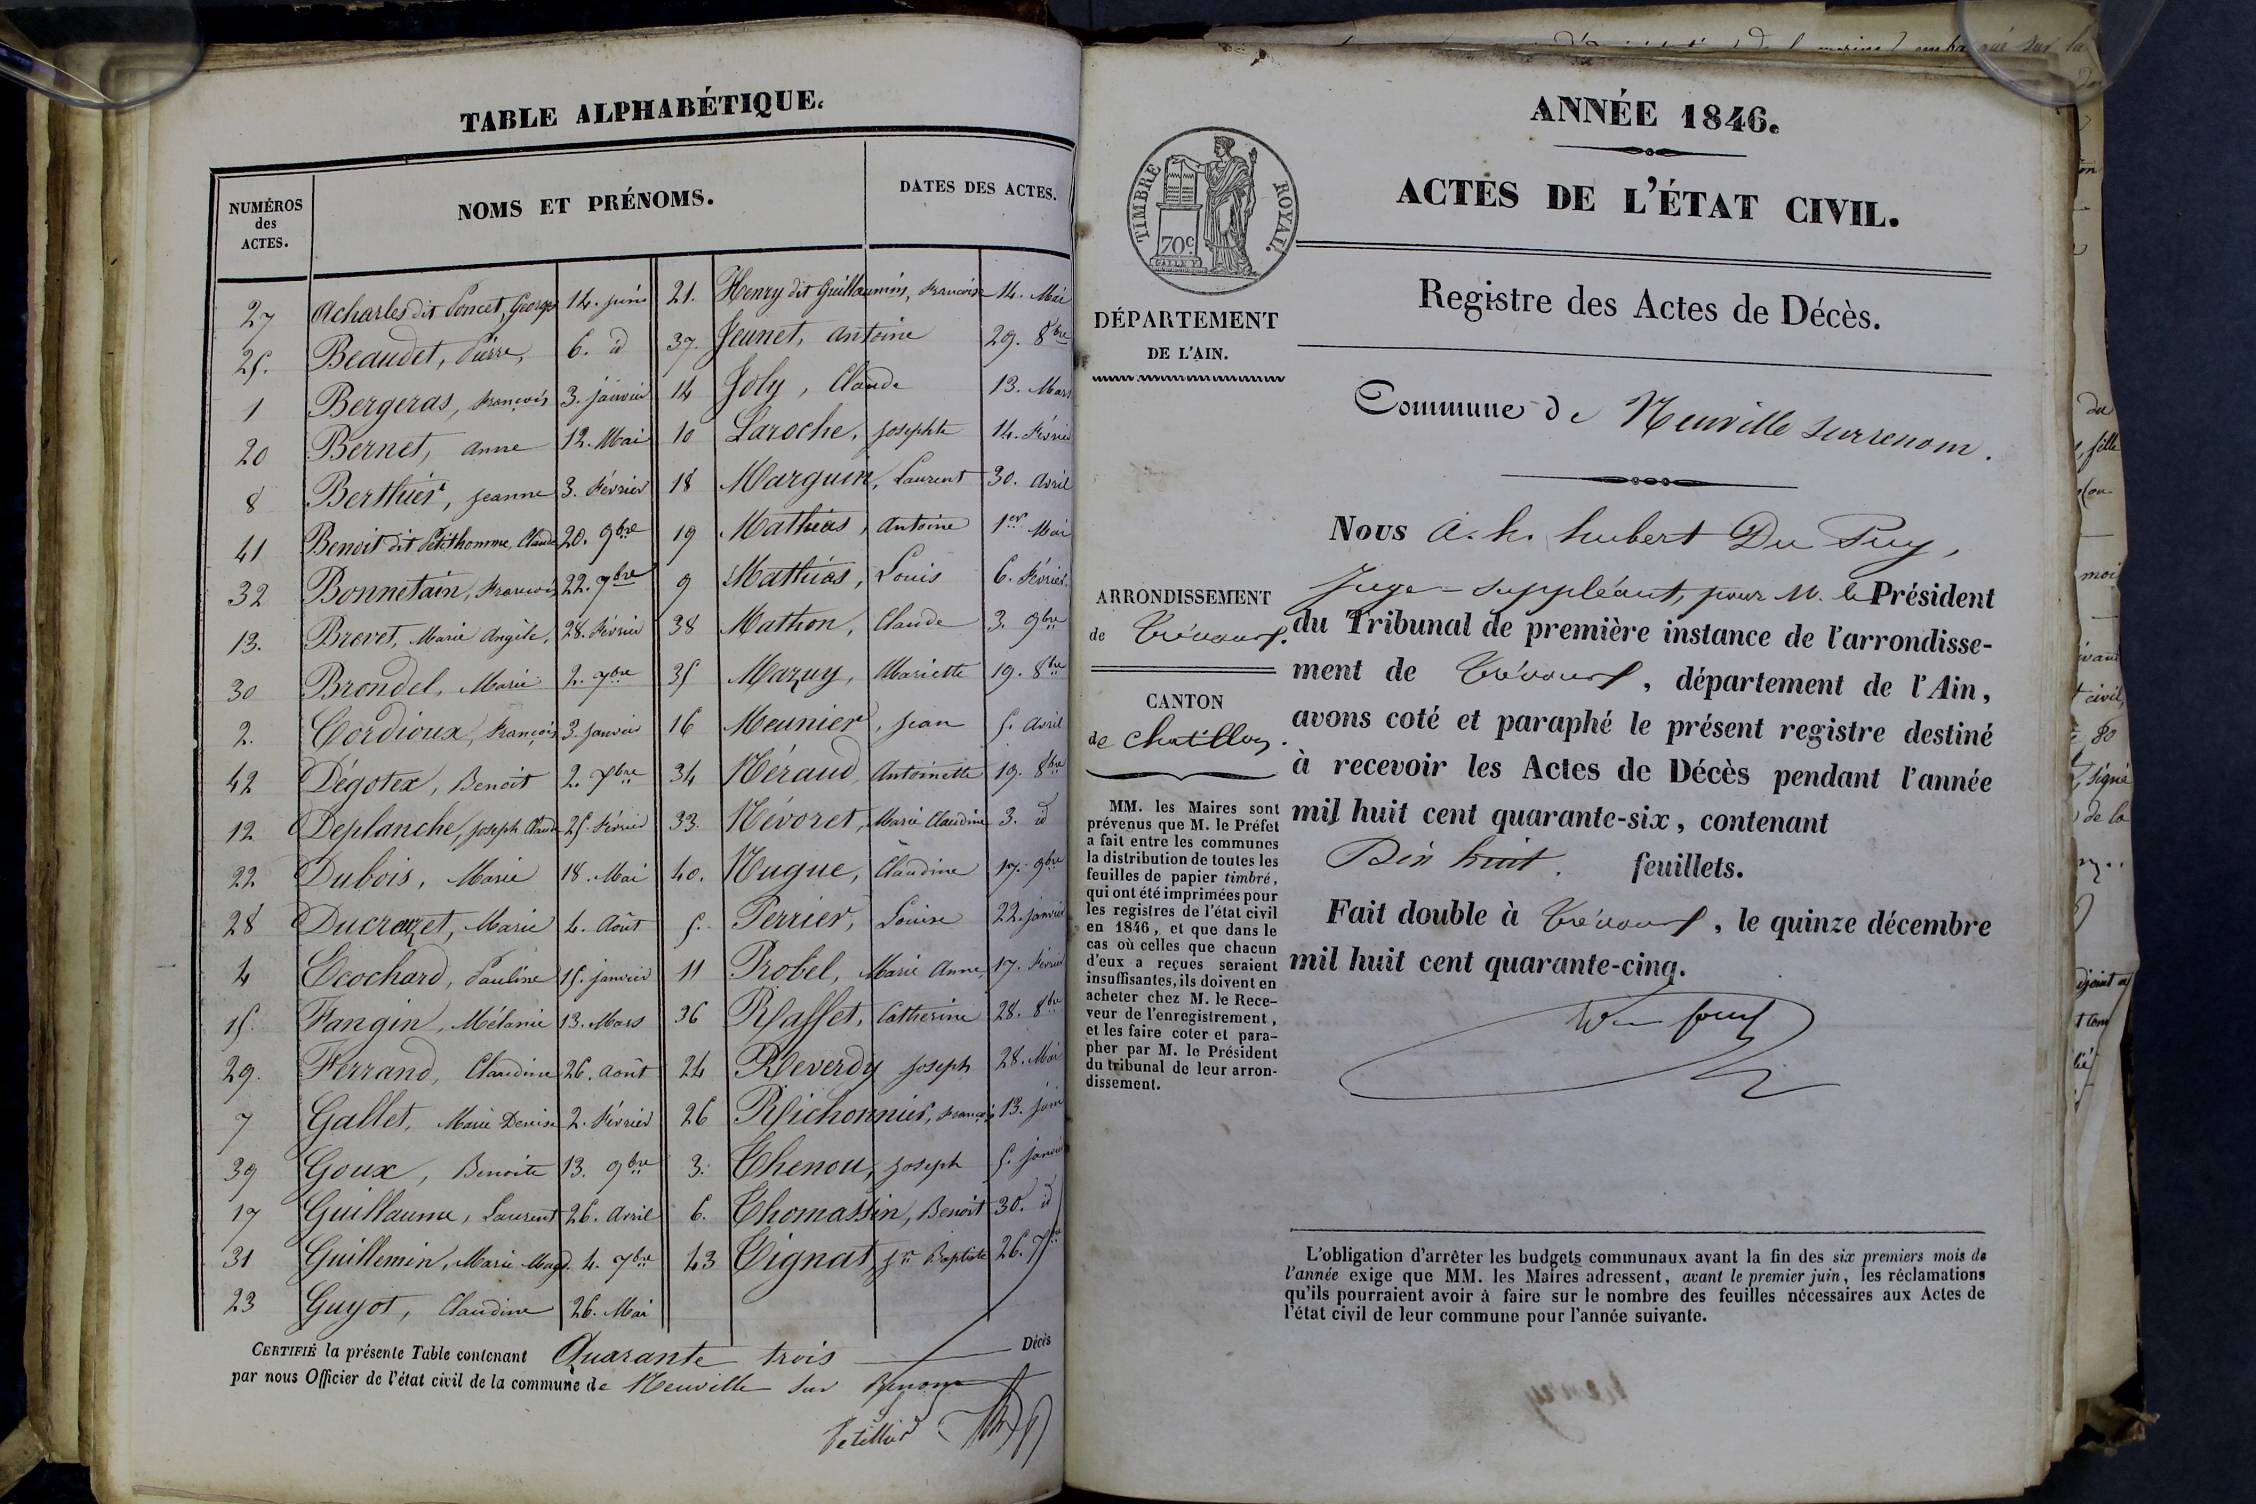 TABLE ALPHABÉTIQUE.
NUMÉROS des ACTES.
NOMS ET PRÉNOMS.
DATES DES ACTES.
27 Acharles dit Poncet, George 14. juin
25. Beaudet, Pierre, 6. id
1 Bergeras, François 3. janvier
20 Bernet, Anne 12. Mai
8 Berthier, Jeanne 3. Février
41 Benoit dit Petithomme, Claude 20. 9bre
32 Bonnetain, François 22. 7bre
13. Brevet, Marie Angèle, 28. Février
30 Brondel, Marie 2. 7bre
2. Cordioux, François 3. janvier
42 Dégotex, Benoit 2. Xbre
12 Deplanche, Joseph Claude 25. Février
22 Dubois, Marie 18. Mai
28 Ducrozet, Marie 4. Août
4 Ecochard, Pauline 15. janvier
15. Fangin, Mélanie 13. Mars
29. Ferrand, Claudine 26. Août
7 Gallet, Marie Denise 2. Février
39 Goux, Benoite 13. 9bre
17 Guillaume, Laurent 26. Avril
31 Guillemin, Marie Magd. 4. 7bre
23 Guyot, Claudine 26. Mai
21. Henry dit Guillaumin, Francoise 14. Mai
37. Jeunet, Antoine 29. 8bre
14 Joly, Claude 13. Mars
10 Laroche, Josephte 14. Février
18 Marguin, Laurent 30. Avril
19 Mathias, Antoine 1er Mai
9 Mathias, Louis 6. Février
38 Mathon, Claude 3. 9bre
35 Mazuy, Mariette 19. 8bre
16 Meunier, Jean 5. Avril
34 Néraud, Antoinette 19. 8bre
33. Névoret, Marie Claudine 3. id
40. Nugue, Claudine 17. 9bre
5. Perrier, Louise 22. janvier
11 Probel, Marie Anne, 17. Février
36 Raffet, Catherine 28. 8bre
24 Reverdy Joseph 28. Mai
26 Richonnier, François 13. juin
3. Thenou, Joseph 5. janvier
6. Thomassin, Benoit 30. id
43 Tignat, Jn Baptiste 26. Xbre
CERTIFIÉ la présente Table contenant Quarante trois Décès
par nous Officier de l'état civil de la commune de Neuville sur Renom
ANNÉE 1846.
ACTES DE L'ÉTAT CIVIL.
TIMBRE ROYAL.
70c
Registre des Actes de Décès.
DÉPARTEMENT
DE L'AIN.
Commune de Neuville surrenom.
ARRONDISSEMENT
de Trévoux.
CANTON
de Chatillon.
MM. les Maires sont
prévenus que M. le Préfet
a fait entre les communes
la distribution de toutes les
feuilles de papier timbré,
qui ont été imprimées pour
les registres de l'état civil
en 1846, et que dans le
cas où celles que chacun
d'eux a reçues seraient
insuffisantes, ils doivent en
acheter chez M. le Rece-
veur de l'enregistrement,
et les faire coter et para-
pher par M. le Président
du tribunal de leur arron-
dissement.
Nous A. h. hubert Du Puy,
Juge-Suppléant, pour M. le Président
du Tribunal de première instance de l'arrondisse-
ment de Trévoux, département de l'Ain,
avons coté et paraphé le présent registre destiné
à recevoir les Actes de Décès pendant l'année
mil huit cent quarante-six, contenant
Dix huit. feuillets.
Fait double à Trévoux, le quinze décembre
mil huit cent quarante-cinq.
L'obligation d'arrêter les budgets communaux avant la fin des six premiers mois de
l'année exige que MM. les Maires adressent, avant le premier juin, les réclamations
qu'ils pourraient avoir à faire sur le nombre des feuilles nécessaires aux Actes de
l'état civil de leur commune pour l'année suivante.